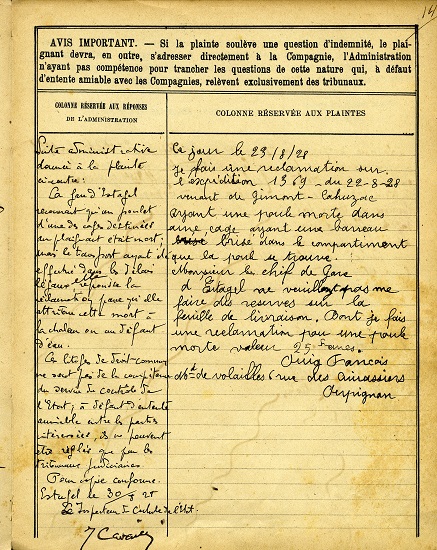 14
AVIS IMPORTANT. — Si la plainte soulève une question d'indemnité, le plai-
gnant devra, en outre, s'adresser directement à la Compagnie, l'Administration
n'ayant pas compétence pour trancher les questions de cette nature qui, à défaut
d'entente amiable avec les Compagnies, relèvent exclusivement des tribunaux.
COLONNE RÉSERVÉE AUX RÉPONSES
DE L'ADMINISTRATION
Suite administrative
donnée à la plainte
ci-contre :
La gare d'Estagel
reconnait qu'un poulet
d'une des cages destinées
au plaignant etait mort ;
mais le transport ayant été
effectué dans les délais
légaux, repousse la
réclamation, parce qu'elle
attribue cette mort à
la chaleur ou au défaut
d'eau.
Ces litiges de droit commun
ne sont pas de la compétence
du service de contrôle de
l'Etat, à défaut d'entente
amiable entre les parties
intéressées, ils ne peuvent
être réglés que par les
tribunaux judiciaires.
Pour copie conforme.
Estagel le 30 28
Le Inspecteur du Contrôle de l'Etat.
COLONNE RÉSERVÉE AUX PLAINTES
Ce jour le 23/8/28
Je fais une reclamation sur
l'expédition 1369 du 22-8-28
venant de Gimont-Cahuzac
ayant une poule morte dans
une cage ayant une barreau
brisé dans le compartiment
que la poul se trouve.
Monsieur le chef de Gare
d Estagel ne veuillant pas me
faire des reserves sur la
feuille de livraison. Dont je fais
une reclamation pour une poule
morte valeur 25 francs.
Puig Francois
Md de volailles 6 rue des
Perpignan